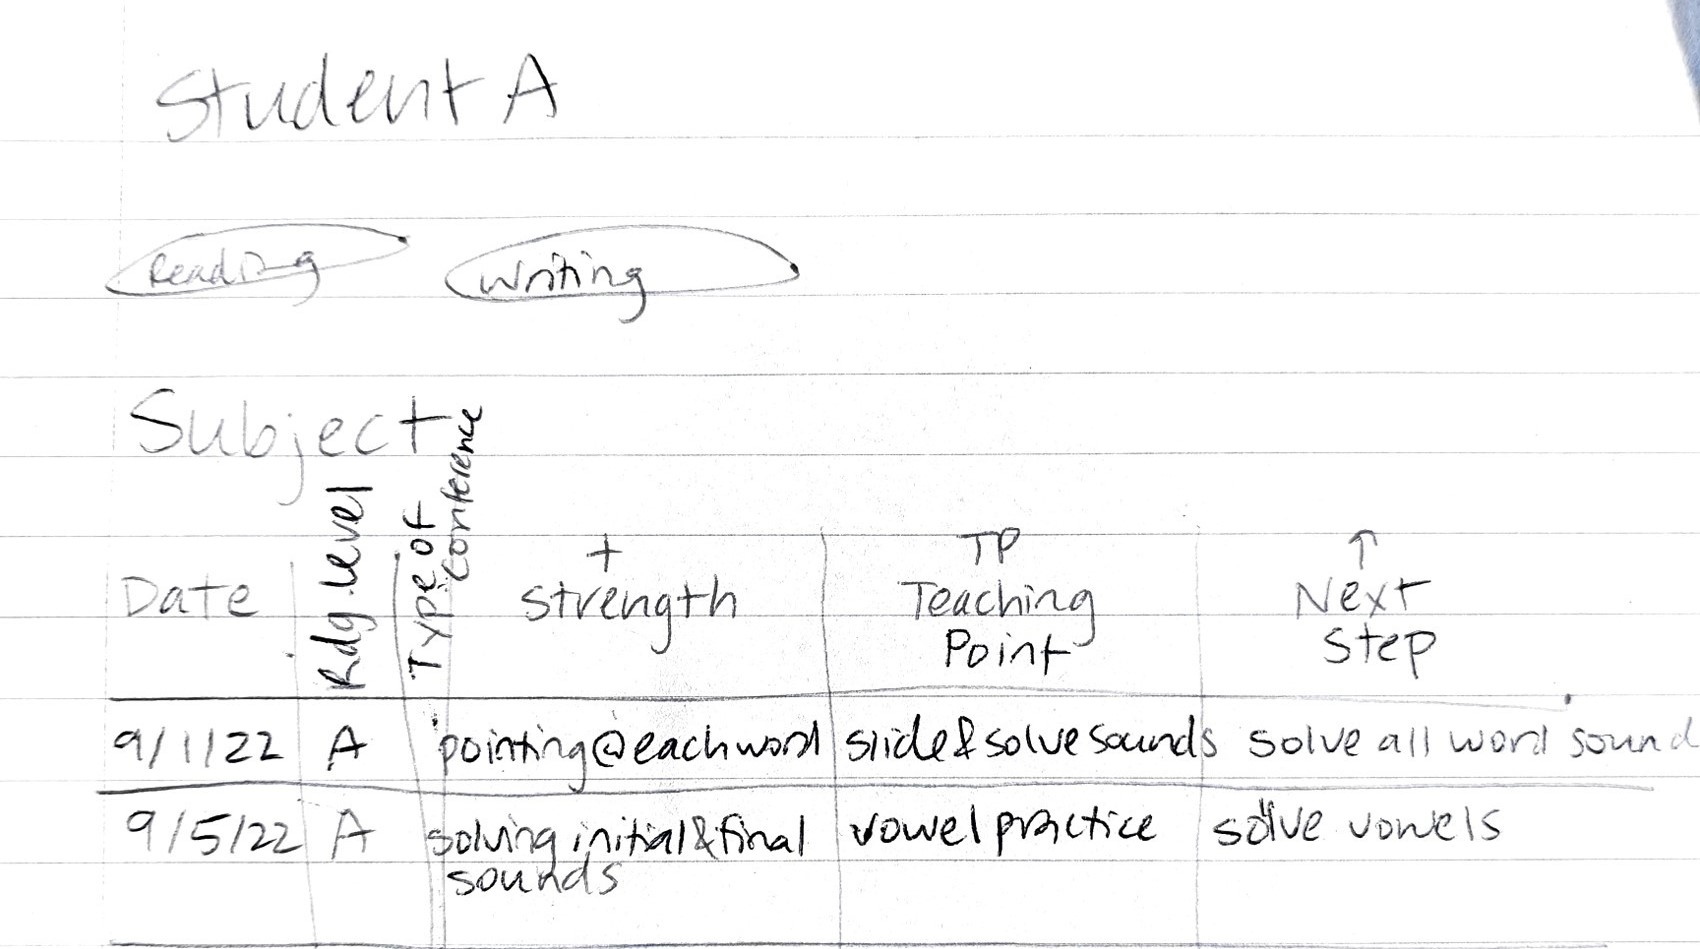 Student A
Reading Writing
Subject
Date Rdg. level Type of Conference + Strength TP Teaching Point ↑ Next Step
9/1/22 A pointing @ each word slide & solve sounds solve all word sound
9/5/22 A solving initial & final vowel practice solve vowels
sounds